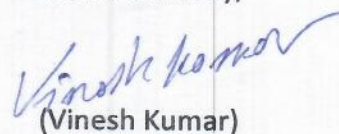 Vinesh Kumar
(Vinesh Kumar)